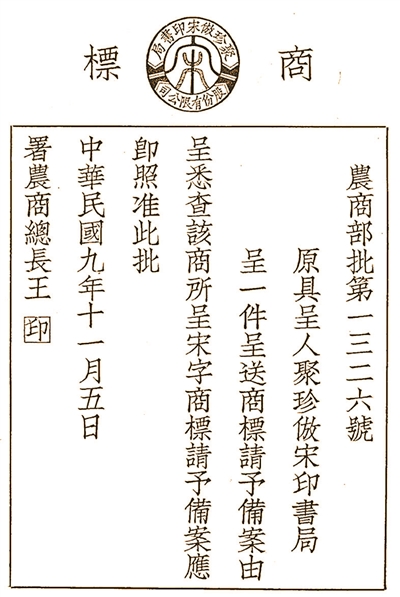 商標
聚珍倣宋印書局
宋
股份有限公司
農商部批第一三二六號
原具呈人聚珍倣宋印書局
呈一件呈送商標請予備案由
呈悉查該商所呈宋字商標請予備案應
即照准此批
中華民國九年十一月五日
署農商總長王 印